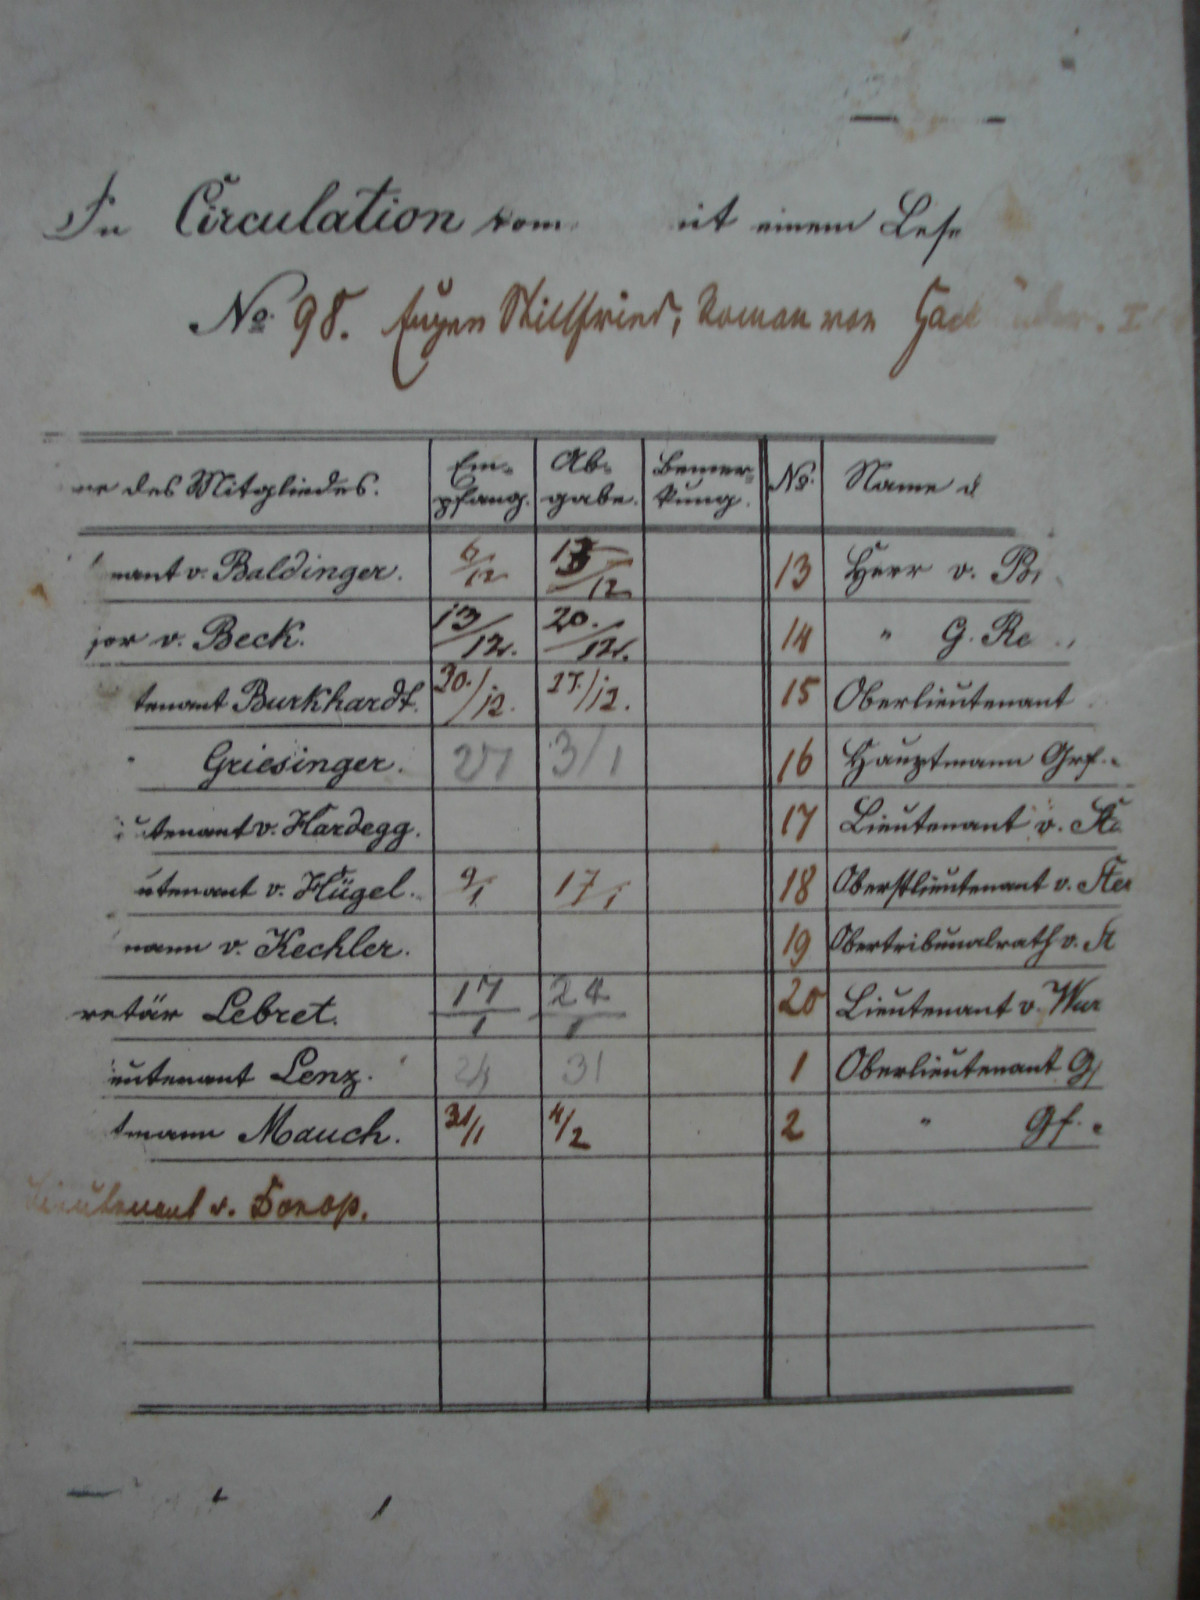 In Circulation vom it einem Lese
No. 98. Eugen Stillfried, Roman von Hack I
des Mitgliedes. Em- Ab- Bemer- No. Name d
pfang. gabe. kung.
nant v. Baldinger. 6/12 13/12 13 Herr v.
jor v. Beck. 13/12. 20./12. 14 " G. Re
tenant Burkhardt. 20./12. 27./12. 15 Oberlieutenant
" Griesinger. 27 3/1 16 Hauptmann Grf.
tenant v. Hardegg. 17 Lieutenant v.
utenant v. Hügel. 9/1 17/1 18 Oberstlieutenant v. Ster
mann v. Kechler. 19 Obertribunalrath v.
retär Lebret. 17/1 24/1 20 Lieutenant v. Wur
ieutenant Lenz. 24 31 1 Oberlieutenant G
tmann Mauch. 31/1 4/2 2 " Gf.
Lieutenant v. Donop.